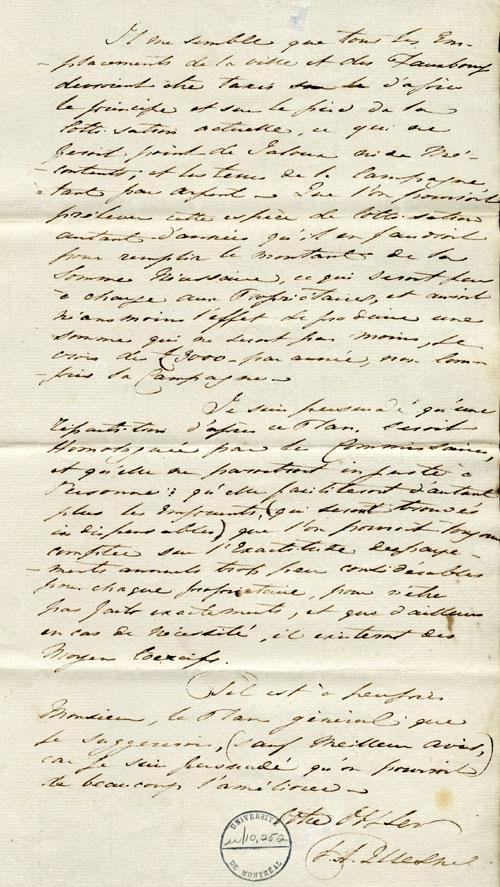 Il me semble que tous les Em-
-placements de la ville et des Fauxbourgs
devroient etre taxés d'après
le principe et sur le pied de la
Cotti-sation actuelle, ce qui ne
feroit point de Jaloux ni de Mé-
-contents, et les terres de la Campagne,
tant par arpent - Que l'on pourroit
prélever cette espèce de Cotti-sation
autant d'années qu'il en faudroit
pour remplir le montant de la
Somme Nécessaire, ce qui seroit peu
à charge aux Propriétaires, et auroit
n'anmoins l'effet de produire une
somme qui ne seroit pas moins, je
crois de £3000 - par année, non Com-
-pris la Campagne -
Je suis persuadé qu'une
Répartition d'après ce Plan, seroit
Homologuée par les Commissaires,
et qu'elle ne paroitroit injuste à
Personne: qu'elle faciliteroit d'autant
plus les Emprunts, (qui seront trouvés
indispensables) que l'on pourroit toujours
compter sur l'Exactitude des paye-
-ments annuels trop peu considérables
pour chaque propriétaire, pour n'être
pas faits exactement, et que d'ailleurs
en cas de Nécessité, il existeroit des
Moyens Coexcifs.
Tel est à peu près
Monsieur, le Plan général que
je suggererois, (sauf Meilleur avis,)
car je suis persuadé qu'on pourroit
de beaucoup l'améliorer -
Votre Ob. Ser
UNIVERSITÉ
U/10,252
DE MONTRÉAL